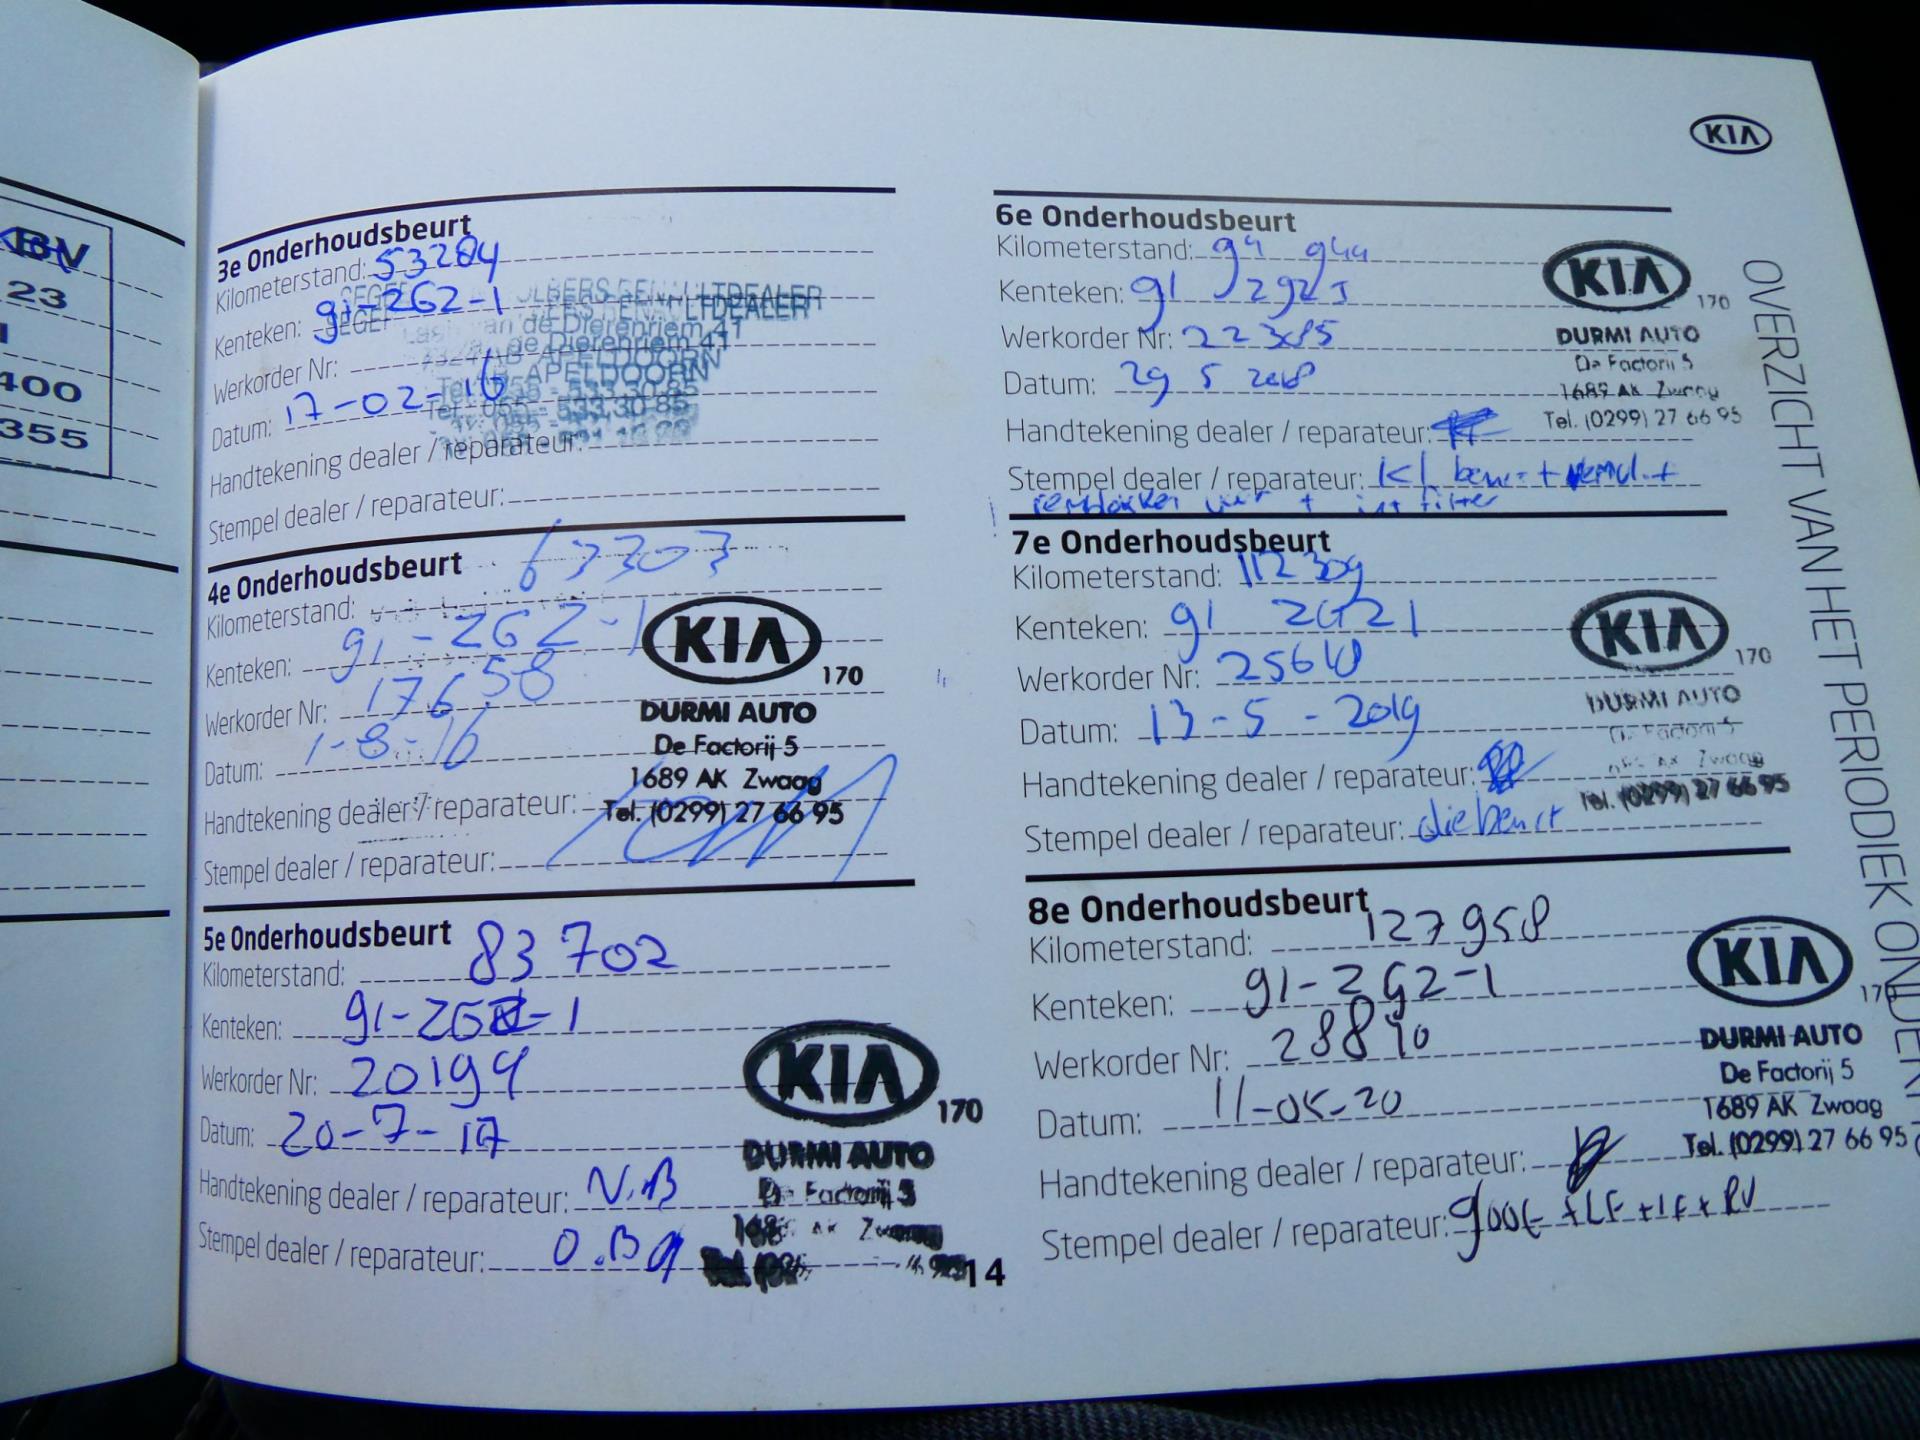 BV
23
400
355
3e Onderhoudsbeurt
Kilometerstand: 53284
Kenteken: 91-ZGZ-1
Werkorder Nr:
Datum: 17-02-16
Handtekening dealer / reparateur:
Stempel dealer / reparateur:
RENAULTDEALER
van de Dierenriem 41
APELDOORN
Tel. 055 - 533 30 85
4e Onderhoudsbeurt
Kilometerstand: 63303
Kenteken: 91-ZGZ-1
Werkorder Nr: 17658
Datum: 1-8-16
Handtekening dealer / reparateur:
Stempel dealer / reparateur:
KIA
170
DURMI AUTO
De Factorij 5
1689 AK Zwaag
Tel. (0299) 27 66 95
5e Onderhoudsbeurt
Kilometerstand: 83702
Kenteken: 91-ZGZ-1
Werkorder Nr: 20199
Datum: 20-7-17
Handtekening dealer / reparateur: N.B
Stempel dealer / reparateur: O.B
KIA
170
DURMI AUTO
De Factorij 5
AK Zwaag
14
KIA
6e Onderhoudsbeurt
Kilometerstand: 94 944
Kenteken: 91
Werkorder Nr: 22385
Datum: 29 5 2018
Handtekening dealer / reparateur:
Stempel dealer / reparateur: kl beurt +
remblokken + int filter
KIA
170
DURMI AUTO
De Factorij 5
1689 AK Zwaag
Tel. (0299) 27 66 95
7e Onderhoudsbeurt
Kilometerstand: 112309
Kenteken: 91 ZGZ1
Werkorder Nr:
Datum: 13-5-2019
Handtekening dealer / reparateur:
Stempel dealer / reparateur: olie beurt
KIA
170
DURMI AUTO
De Factorij 5
AK Zwaag
Tel. (0299) 27 66 95
8e Onderhoudsbeurt
Kilometerstand: 127958
Kenteken: 91-ZGZ-1
Werkorder Nr: 28840
Datum: 11-05-20
Handtekening dealer / reparateur:
Stempel dealer / reparateur: +LF+IF+RV
KIA
170
DURMI AUTO
De Factorij 5
1689 AK Zwaag
Tel. (0299) 27 66 95
OVERZICHT VAN HET PERIODIEK